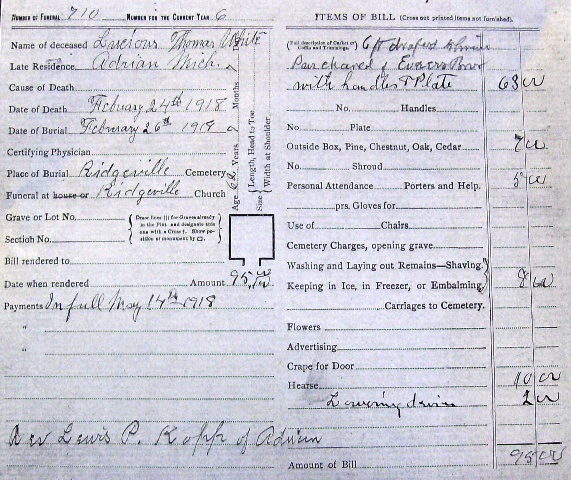 NUMBER OF FUNERAL 710 NUMBER FOR THE CURRENT YEAR 6
Name of deceased Lucious Thomas White
Late Residence Adrian Mich.
Cause of Death
Date of Death February 24th 1918
Date of Burial February 26th 1918
Certifying Physician
Place of Burial Ridgeville Cemetery
Funeral at house or Ridgeville Church
Grave or Lot No.
Section No.
Bill rendered to
Date when rendered Amount 95.00
Payments In full May 14th 1918
"
"
Rev Lewis P. Kopp of Adrian
Age 62 Years, Months
Size Length, Head to Toe
Width at Shoulder
ITEMS OF BILL (Cross out printed items not furnished).
6 ft draped
Purchased of
with handles & Plate 63 00
No. Handles
No. Plate
Outside Box, Pine, Chestnut, Oak, Cedar 7 00
No. Shroud
Personal Attendance Porters and Help. 5 00
prs. Gloves for
Use of Chairs
Cemetery Charges, opening grave
Washing and Laying out Remains—Shaving
Keeping in Ice, in Freezer, or Embalming 8 00
Carriages to Cemetery.
Flowers
Advertising
Crape for Door
Hearse 10 00
Lowering device 2 00
Amount of Bill 95 00